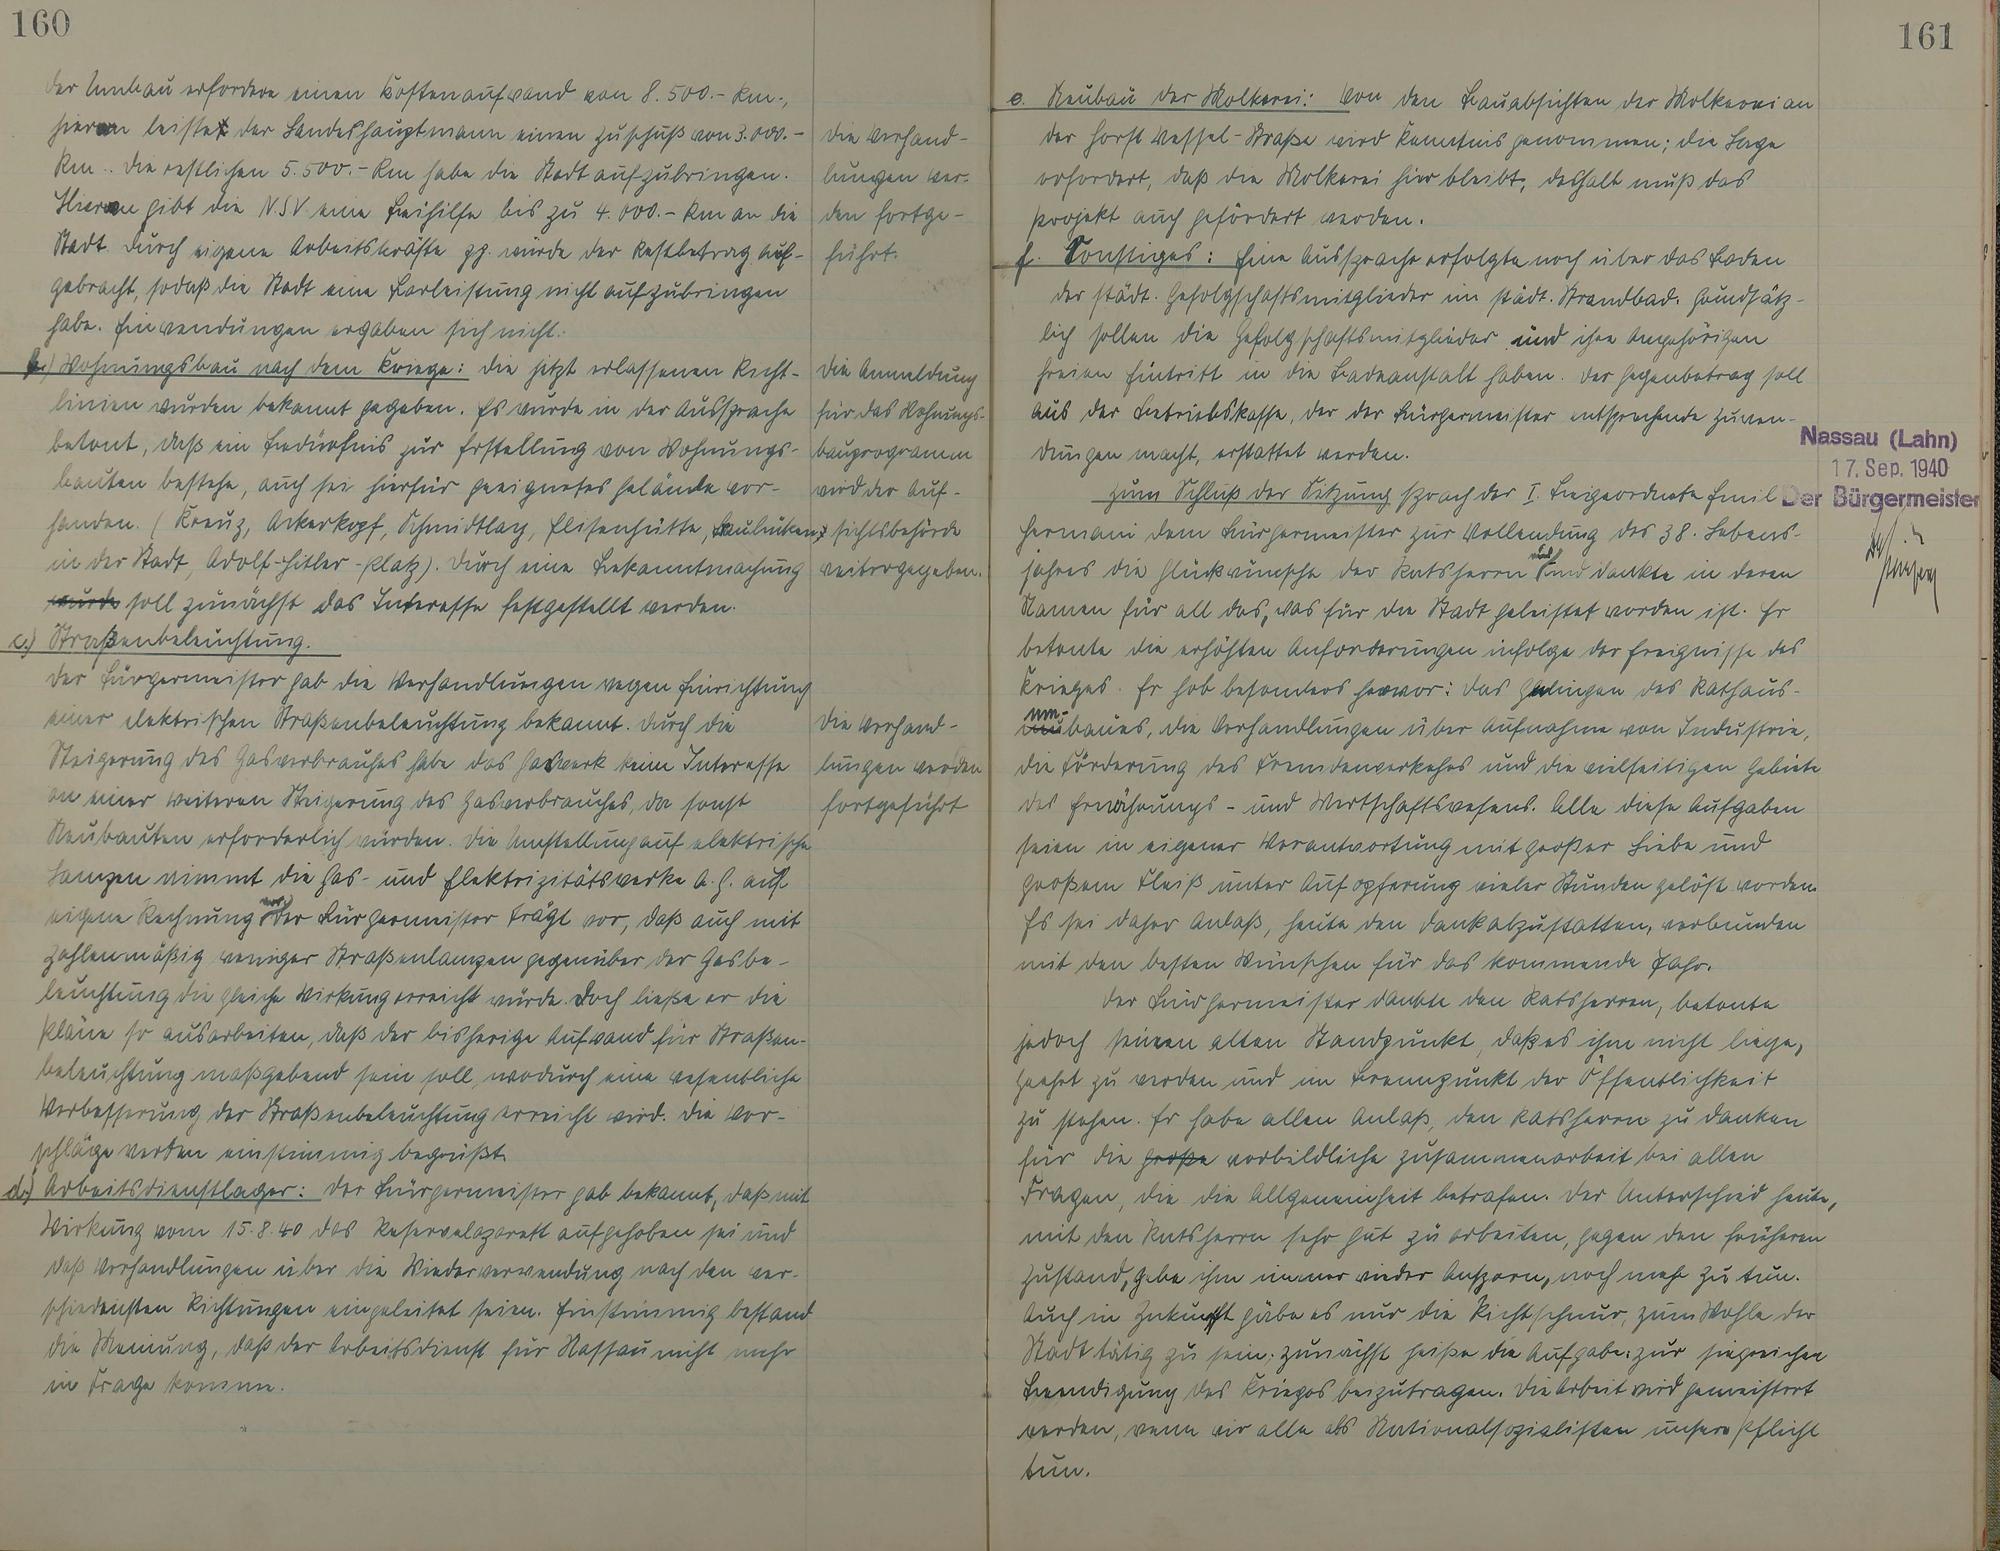 160
Der Umbau erfordere einen Kostenaufwand von 8.500.- Rm.,
hieran leistet der Landeshauptmann einen Zuschuß von 3.000.-
Rm. Die restlichen 5.500.- Rm habe die Stadt aufzubringen.
Hieran gibt die NSV eine Beihilfe bis zu 4.000.- Rm an die
Stadt. Durch eigene Arbeitskräfte pp. würde der Restbetrag auf-
gebracht, sodaß die Stadt eine Barleistung nicht aufzubringen
habe. Einwendungen ergaben sich nicht.
Die Verhand-
lungen wer-
den fortge-
führt.
b.) Wohnungsbau nach dem Kriege: Die jetzt erlassenen Richt-
linien wurden bekannt gegeben. Es wurde in der Aussprache
betont, daß ein Bedürfnis zur Erstellung von Wohnungs-
bauten bestehe, auch sei hierfür geeignetes Gelände vor-
handen. (Kreuz, Ackerkopf, Schmidtlay, Elisenhütte, Baulücken
in der Stadt, Adolf-Hitler-Platz). Durch eine Bekanntmachung
wurde soll zunächst das Interesse festgestellt werden.
Die Anmeldung
für das Wohnungs-
bauprogramm
wird der Auf-
sichtsbehörde
weitergegeben.
c.) Straßenbeleuchtung.
Der Bürgermeister gab die Verhandlungen wegen Einrichtung
einer elektrischen Straßenbeleuchtung bekannt. Durch die
Steigerung des Gasverbrauches habe das Gaswerk kein Interesse
an einer weiteren Steigerung des Gasverbrauches, da sonst
Neubauten erforderlich würden. Die Umstellung auf elektrische
Lampen nimmt die Gas- und Elektrizitätswerke A.G. auf
eigene Rechnung vor. Der Bürgermeister trägt vor, daß auch mit
zahlenmäßig weniger Straßenlampen gegenüber der Gasbe-
leuchtung die gleiche Wirkung erreicht würde. Doch ließe er die
Pläne so ausarbeiten, daß der bisherige Aufwand für Straßen-
beleuchtung maßgebend sein soll, wodurch eine wesentliche
Verbesserung der Straßenbeleuchtung erreicht wird. Die Vor-
schläge werden einstimmig begrüßt.
Die Verhand-
lungen werden
fortgeführt
d.) Arbeitsdienstlager: Der Bürgermeister gab bekannt, daß mit
Wirkung vom 15.8.40 das Reservelazarett aufgehoben sei und
daß Verhandlungen über die Wiederverwendung nach den ver-
schiedensten Richtungen eingeleitet seien. Einstimmig bestand
die Meinung, daß der Arbeitsdienst für Nassau nicht mehr
in Frage komme.
161
e. Neubau der Molkerei: Von den Bauabsichten der Molkerei an
der Horst Wessel-Straße wird Kenntnis genommen; die Lage
erfordert, daß die Molkerei hier bleibt, deshalb muß das
Projekt auch gefördert werden.
f. Sonstiges: Eine Aussprache erfolgte noch über das Baden
der städt. Gefolgschaftsmitglieder im städt. Strandbad. Grundsätz-
lich sollen die Gefolgschaftsmitglieder und ihre Angehörigen
freien Eintritt in die Badeanstalt haben. Der Gegenbetrag soll
aus der Betriebskasse, der der Bürgermeister entsprechende Zuwen-
dungen macht, erstattet werden.
Nassau (Lahn)
17. Sep. 1940
Der Bürgermeister
Zum Schluß der Sitzung sprach der I. Beigeordnete Emil
Hermani dem Bürgermeister zur Vollendung des 38. Lebens-
jahres die Glückwünsche der Ratsherrn und dankte in deren
Namen für all das, was für die Stadt geleistet worden ist. Er
betonte die erhöhten Anforderungen infolge der Ereignisse des
Krieges. Er hob besonders hervor: Das Gelingen des Rathaus-
umbaues, die Verhandlungen über Aufnahme von Industrie,
die Förderung des Fremdenverkehrs und die vielseitigen Gebiete
des Ernährungs- und Wirtschaftswesens. Alle diese Aufgaben
seien in eigener Verantwortung mit großer Liebe und
großem Fleiß unter Aufopferung vieler Stunden gelöst worden.
Es sei daher Anlaß, heute den Dank abzustatten, verbunden
mit den besten Wünschen für das kommende Jahr.
Der Bürgermeister dankte den Ratsherren, betonte
jedoch seinen alten Standpunkt, daß es ihm nicht liege,
geehrt zu werden und im Brennpunkt der Öffentlichkeit
zu stehen. Er habe allen Anlaß, den Ratsherrn zu danken
für die große vorbildliche Zusammenarbeit bei allen
Fragen, die die Allgemeinheit betrafen. Der Unterschied heute,
mit den Ratsherrn sehr gut zu arbeiten, gegen den früheren
Zustand, gebe ihm immer wieder Ansporn, noch mehr zu tun.
Auch in Zukunft gäbe es nur die Richtschnur, zum Wohle der
Stadt tätig zu sein; zunächst heiße die Aufgabe: zur siegreichen
Beendigung des Krieges beizutragen. Die Arbeit wird gemeistert
werden, wenn wir alle als Nationalsozialisten unsere Pflicht
tun.